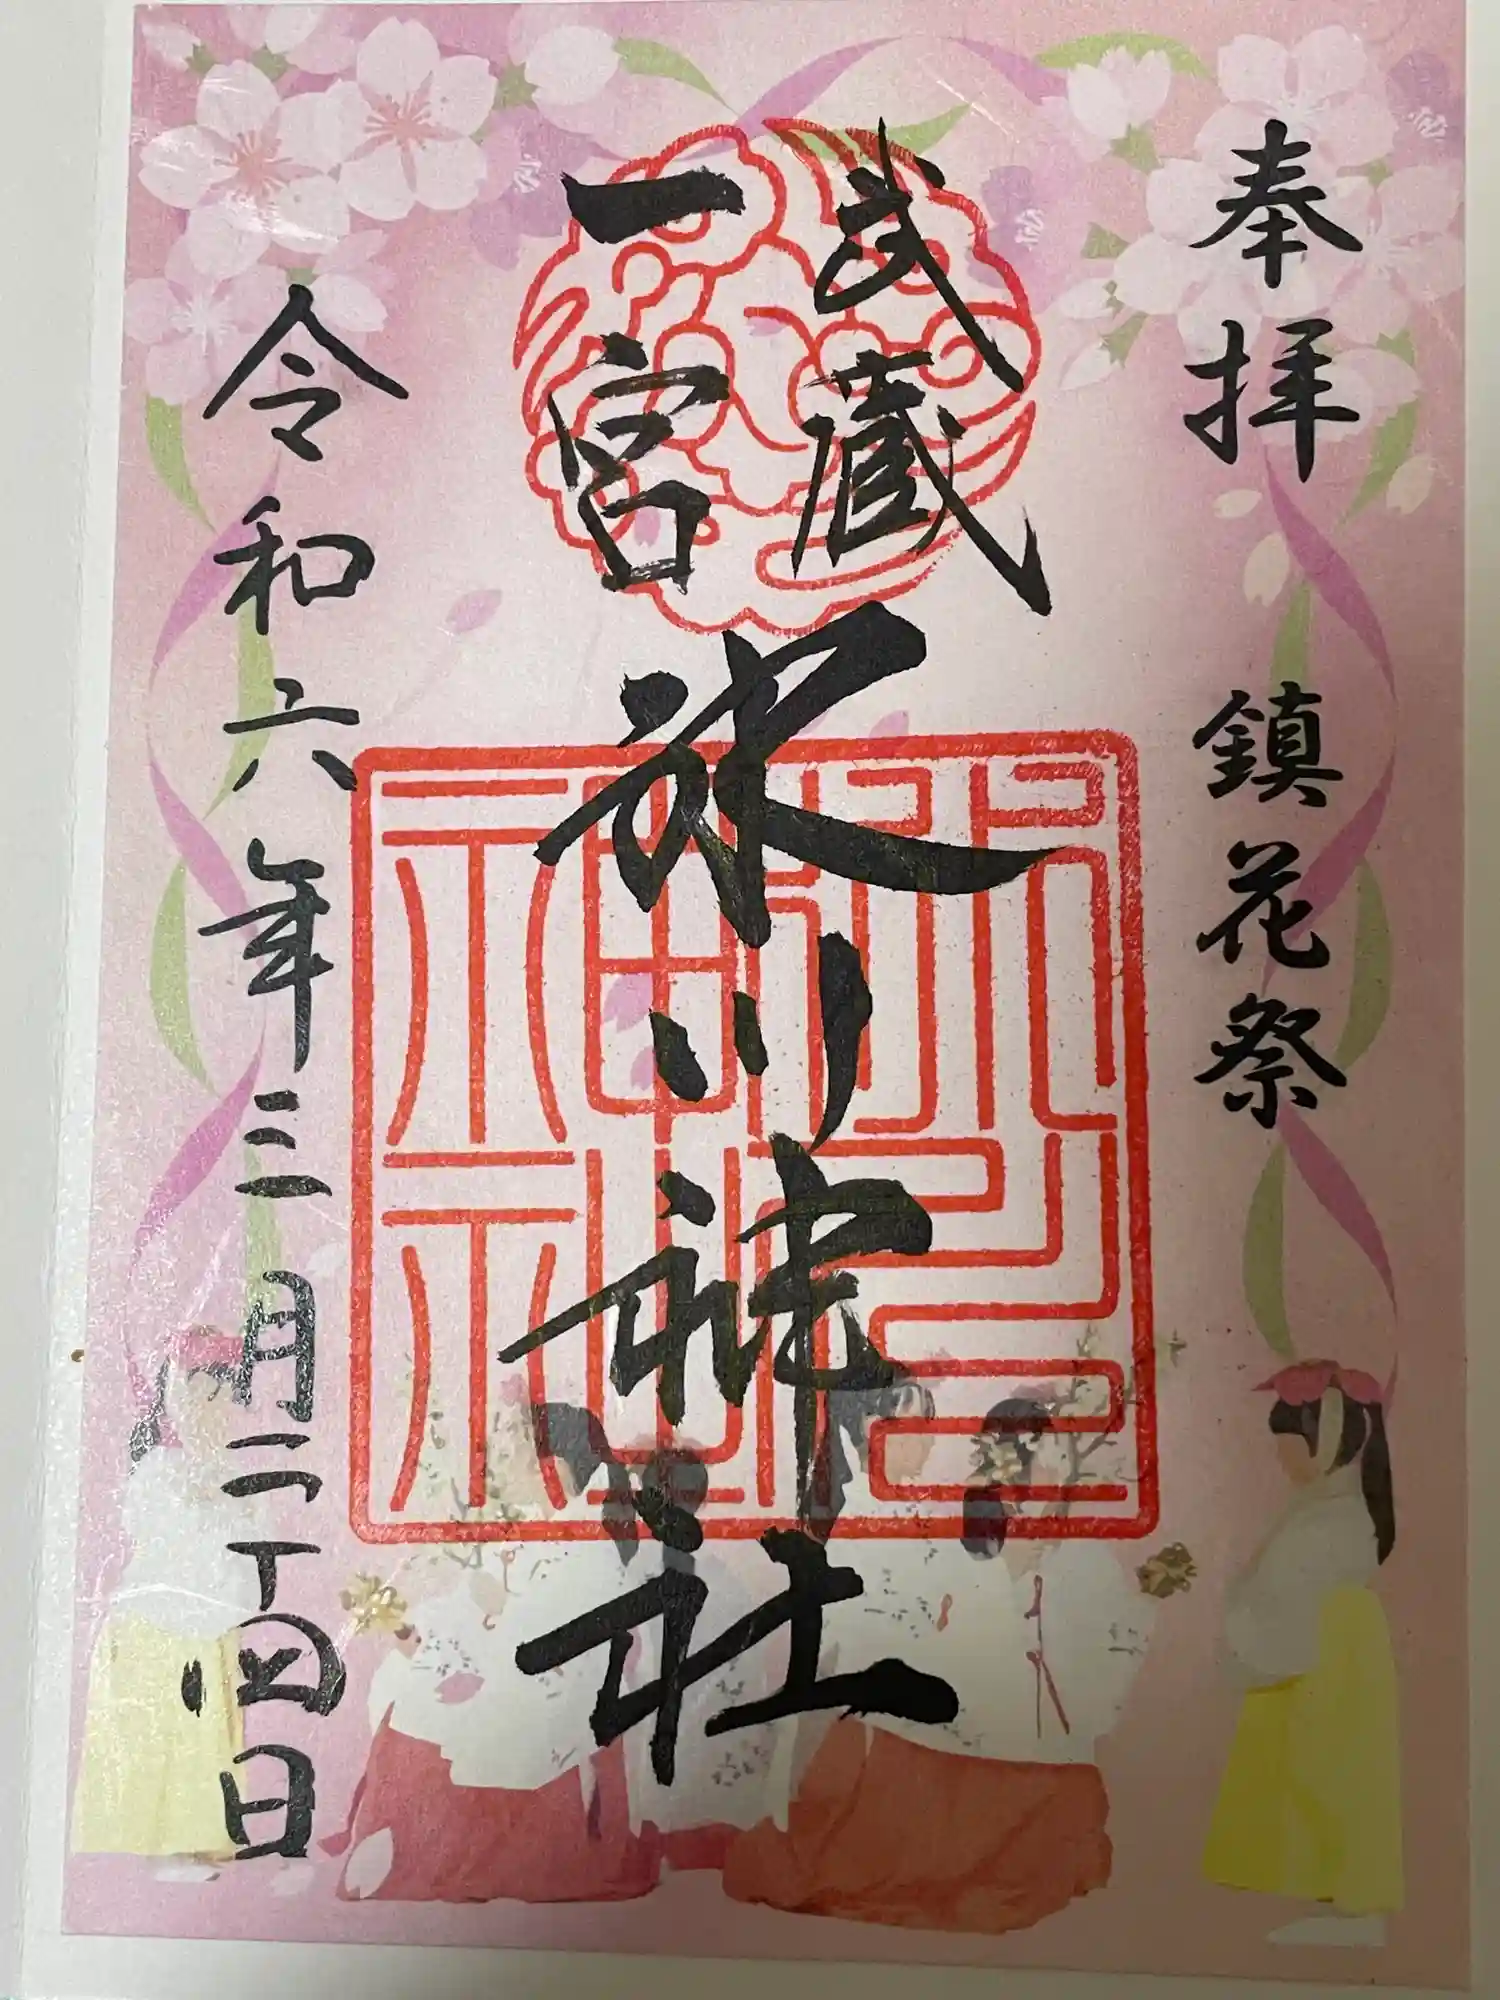 奉拝　鎮花祭
武蔵
一宮
氷川神社
令和六年三月二十四日